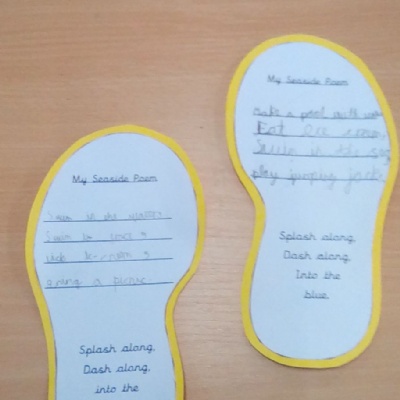 My Seaside Poem
Make a pool with
Eat Ice cream
Swim in the sea
play jumping jacks
Splash along,
Dash along,
Into the
blue.
My Seaside Poem
Swim in the
Swim in
a picnic
Splash along,
Dash along,
into the